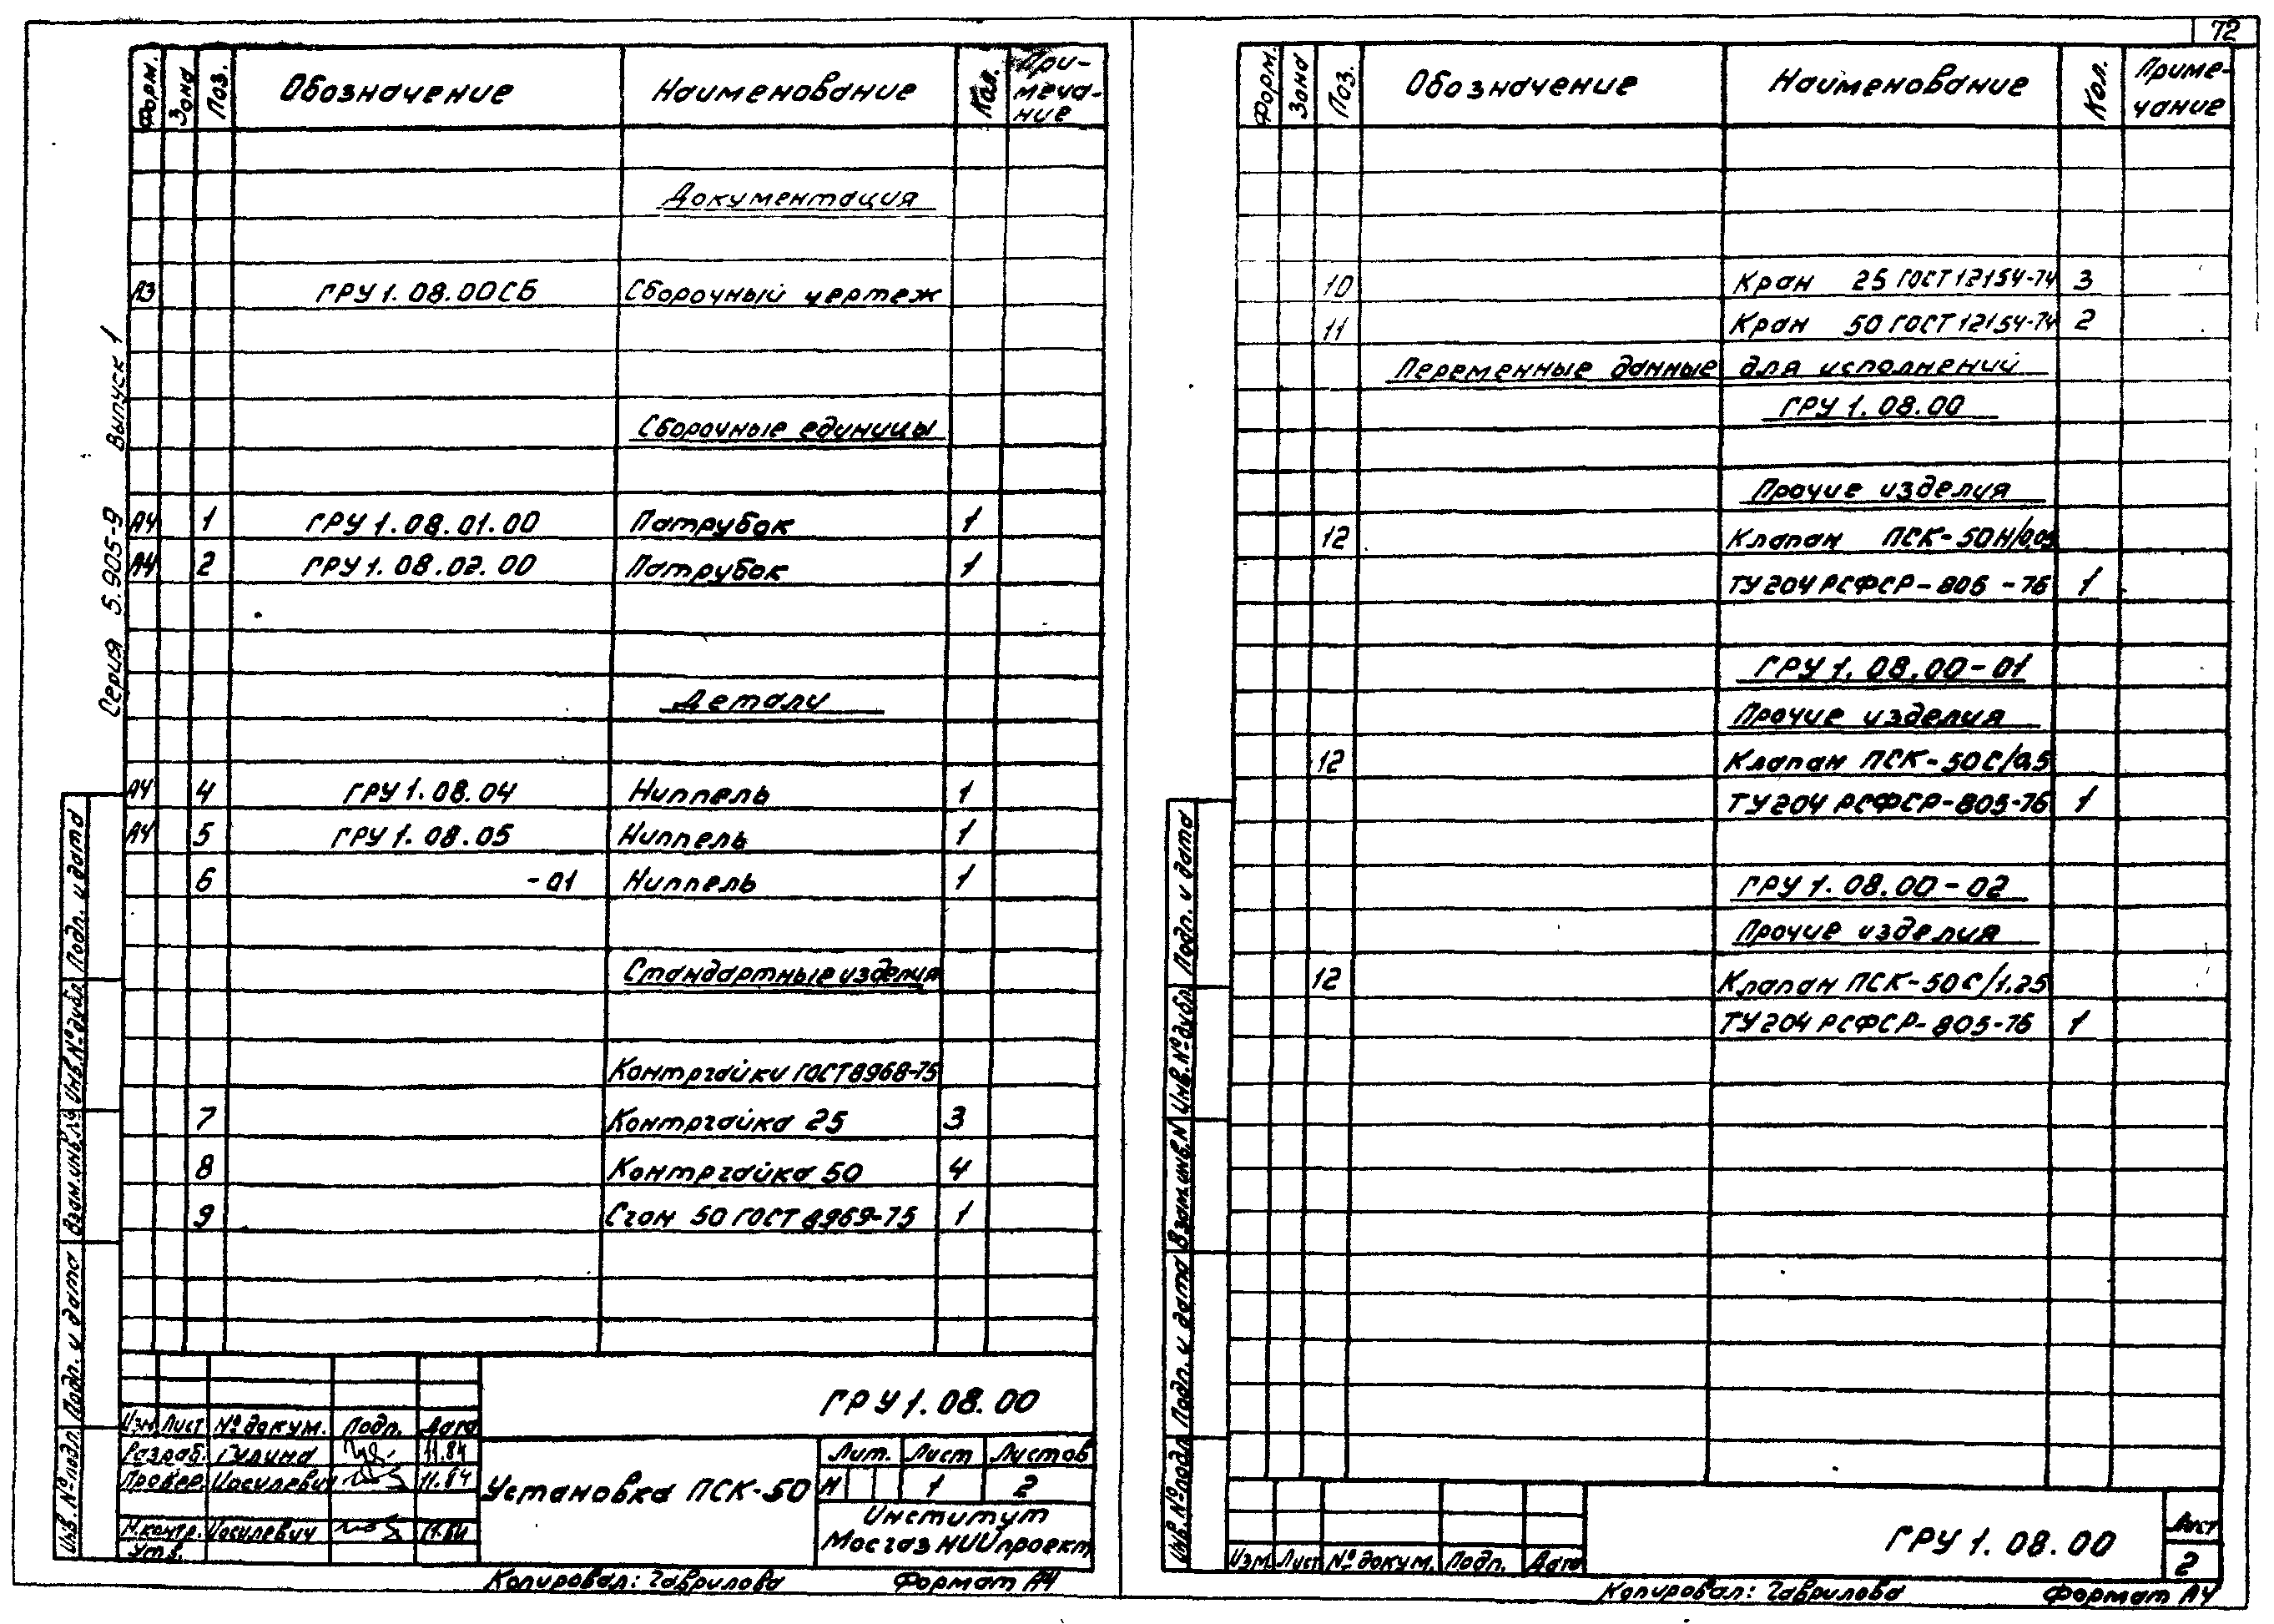 72
Серия 5.905-9 Выпуск 1
Форм. Зона Поз. Обозначение Наименование Кол. При-мeча-ние
Документация
А3 ГРУ 1.08.00СБ Сборочный чертеж
Сборочные единицы
А4 1 ГРУ 1.08.01.00 Патрубок 1
А4 2 ГРУ 1.08.02.00 Патрубок 1
Детали
А4 4 ГРУ 1.08.04 Ниппель 1
А4 5 ГРУ 1.08.05 Ниппель 1
6 -01 Ниппель 1
Стандартные изделия
Контргайки ГОСТ 8968-75
7 Контргайка 25 3
8 Контргайка 50 4
9 Сгон 50 ГОСТ 8969-75 1
Инв. № подл. Подп. и дата Взам. инв. № Инв. № дубл. Подп. и дата
ГРУ 1.08.00
Изм Лист № докум. Подп. Дата
Разраб. Гулина 11.84
Провер. Иосилевич 11.84
Н.контр. Иосилевич 11.84
Утв.
Установка ПСК-50
Лит. Лист Листов
И 1 2
Институт
МосгазНИИпроект
Копировал: Гаврилова Формат А4
Форм. Зона Поз. Обозначение Наименование Кол. Приме-чание
10 Кран 25 ГОСТ 12154-74 3
11 Кран 50 ГОСТ 12154-74 2
Переменные данные для исполнений
ГРУ 1.08.00
Прочие изделия
12 Клапан ПСК-50Н/0,05
ТУ 204 РСФСР-805-76 1
ГРУ 1.08.00-01
Прочие изделия
12 Клапан ПСК-50С/0,5
ТУ 204 РСФСР-805-76 1
ГРУ 1.08.00-02
Прочие изделия
12 Клапан ПСК-50С/1.25
ТУ 204 РСФСР-805-76 1
Инв. № подл. Подп. и дата Взам. инв. № Инв. № дубл. Подп. и дата
Изм. Лист № докум. Подп. Дата
ГРУ 1.08.00
Лист
2
Копировал: Гаврилова Формат А4